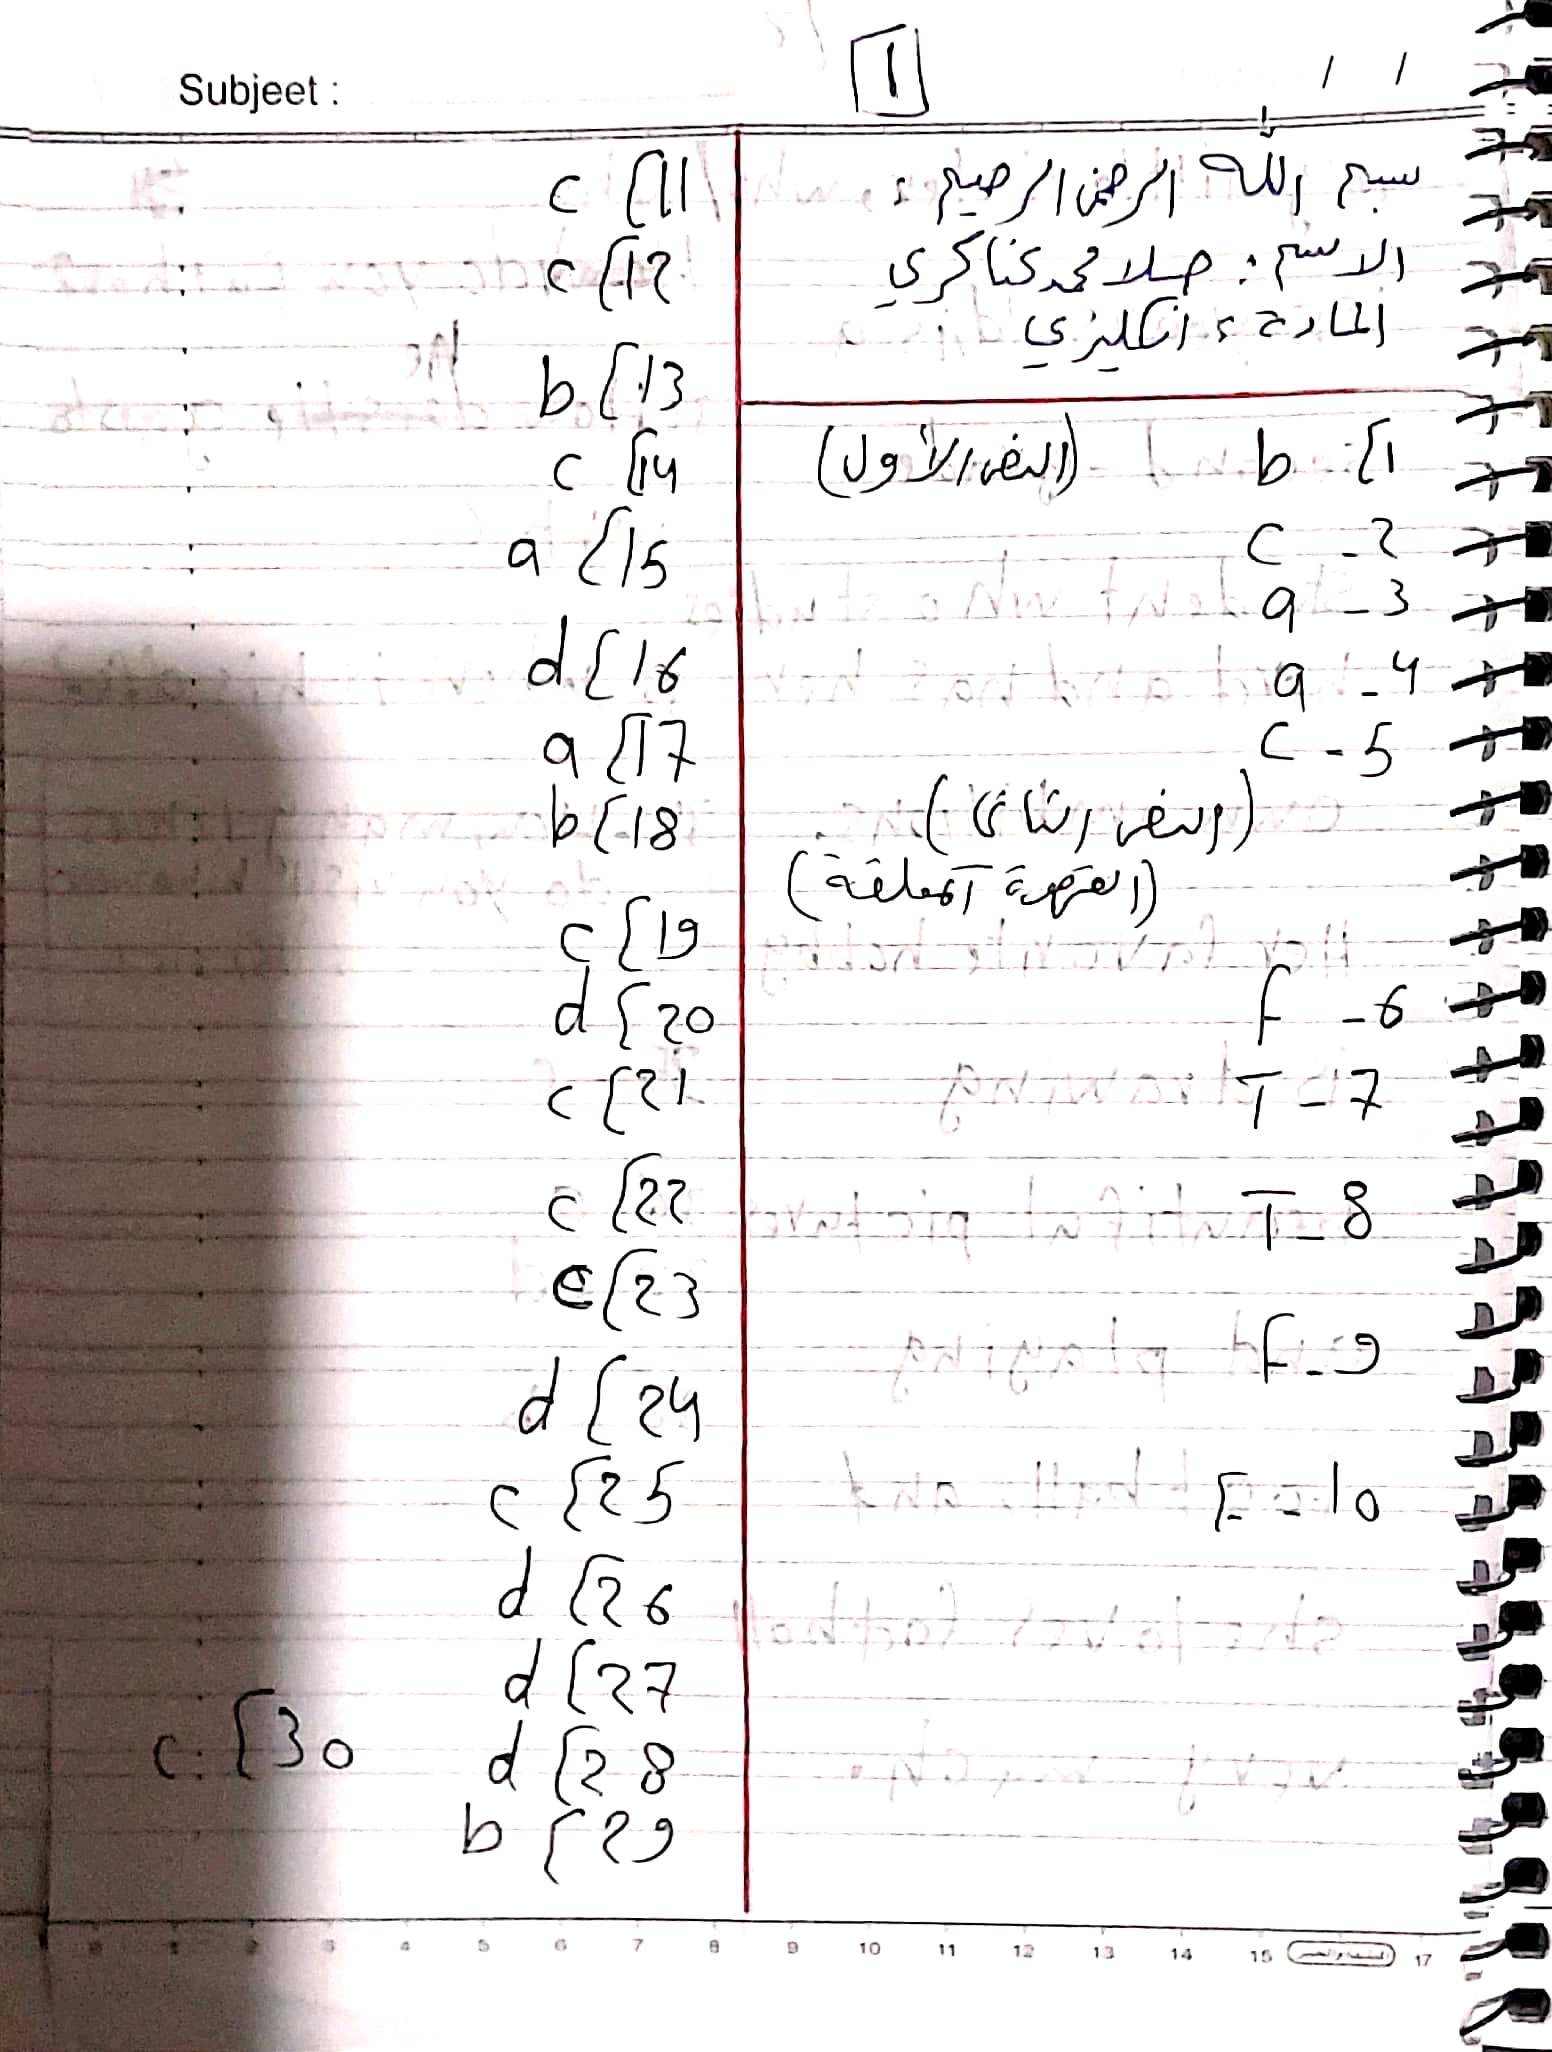 Subjeet :
1
/ /
بسم الله الرحمن الرحيم :
الاسم : حلا محمد كناكري
المادة : انكليزي
(النص الأول) b {1
c - 2
a - 3
a - 4
c - 5
(النص الثاني)
(القهوة المعلقة)
f - 6
T - 7
T - 8
f - 9
F - 10
c {11
c {12
b {13
c {14
a {15
d {16
a {17
b {18
c {19
d {20
c {21
c {22
c {23
d {24
c {25
d {26
d {27
d {28
b {29
c {30
0 1 2 3 4 5 6 7 8 9 10 11 12 13 14 15 17